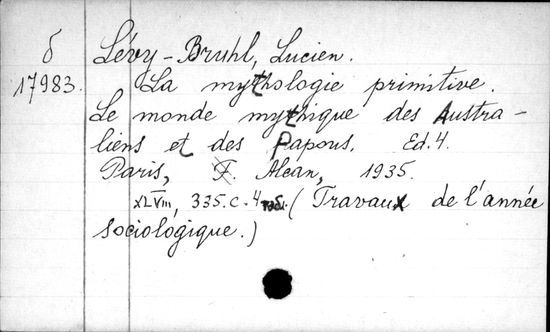 б Lévy-Bruhl, Lucien.
17983. La mythologie primitive.
Le monde mythique des Austra-
liens et des Papous. Ed. 4.
Paris, F. Alcan, 1935.
XLVIII, 335 с. 4 табл. (Travaux de l'année
sociologique.)